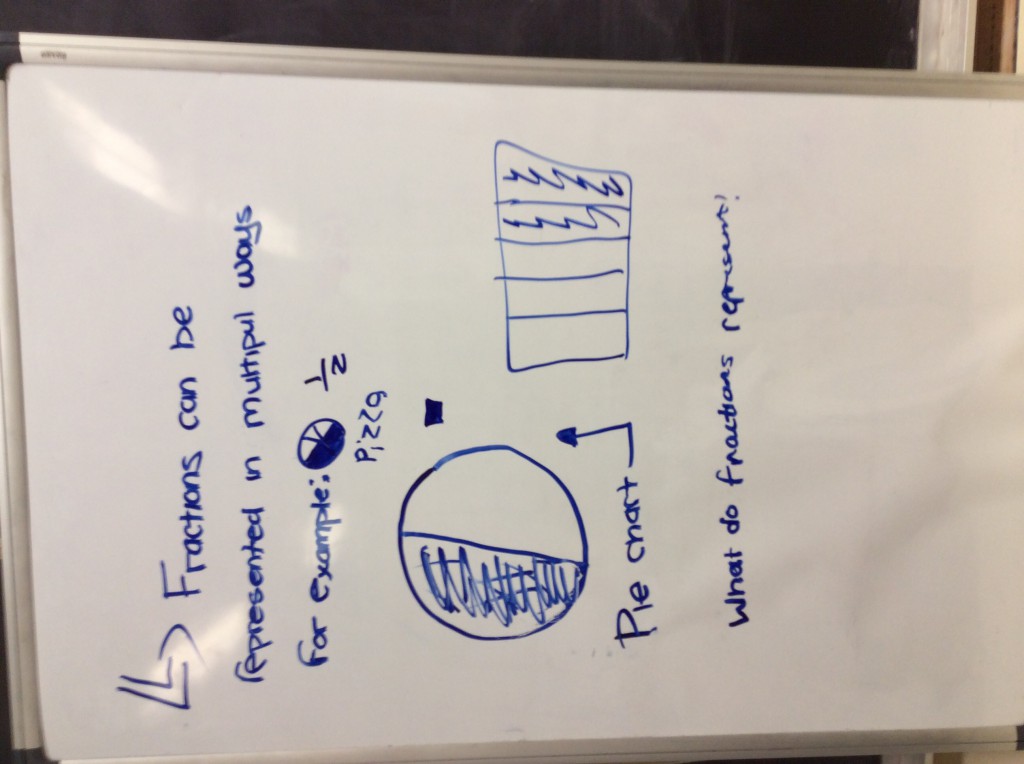 Fractions can be
represented in multipul ways
for example: 1/2
Pizza
Pie chart
What do fractions represent?